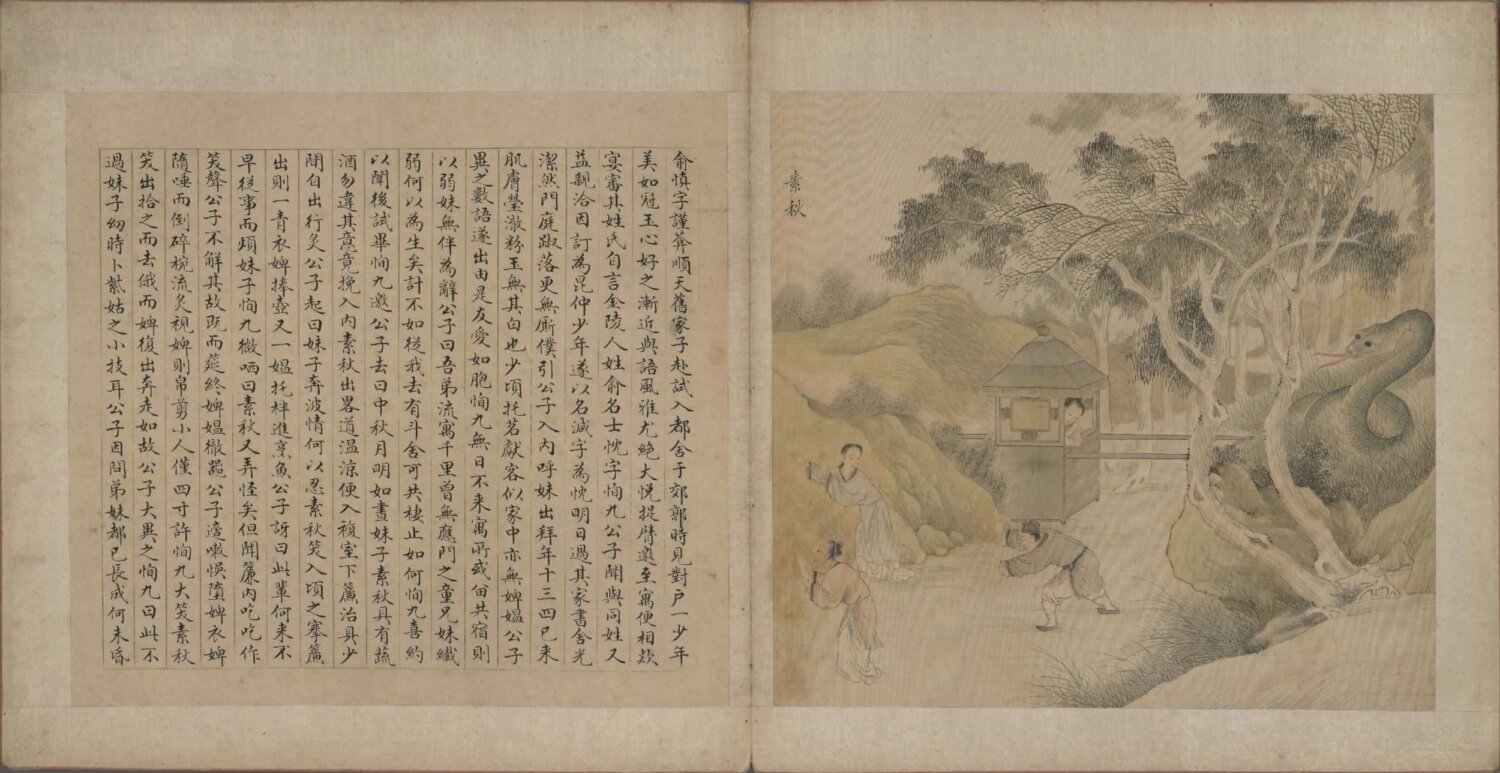 素秋
俞慎字謹葊順天舊家子赴試入都舍于郊郭時見對户一少年
美如冠玉心好之漸近與語風雅尤絶大悦捉臂邀至寓便相欵
宴審其姓氏自言金陵人姓俞名士忱字恂九公子聞與同姓又
益親洽因訂為昆仲少年遂以名減字為忱明日過其家書舍光
潔然門庭踧落更無厮僕引公子入内呼妹出拜年十三四已来
肌膚瑩澈粉玉無其白也少頃托茗獻客似家中亦無婢媼公子
異之數語遂出由是友愛如胞恂九無日不来寓所或畱共宿則
以弱妹無伴為辭公子曰吾弟流寓千里曾無應門之童兄妹纖
弱何以為生矣計不如從我去有斗舍可共棲止如何恂九喜約
以闈後試畢恂九邀公子去曰中秋月明如晝妹子素秋具有蔬
酒勿違其意竟挽入内素秋出畧道温涼便入複室下簾治具少
間自出行炙公子起曰妹子奔波情何以忍素秋笑入頃之搴簾
出則一青衣婢捧壺又一媼托柈進烹魚公子訝曰此輩何来不
早從事而煩妹子恂九微哂曰素秋又弄怪矣但聞簾内吃吃作
笑聲公子不解其故既而筵終婢媼徹器公子適嗽悞墮婢衣婢
隨唾而倒碎椀流炙視婢則帛剪小人僅四寸許恂九大笑素秋
笑出拾之而去俄而婢復出奔走如故公子大異之恂九曰此不
過妹子幼時卜紫姑之小技耳公子因問弟妹都已長成何未昏